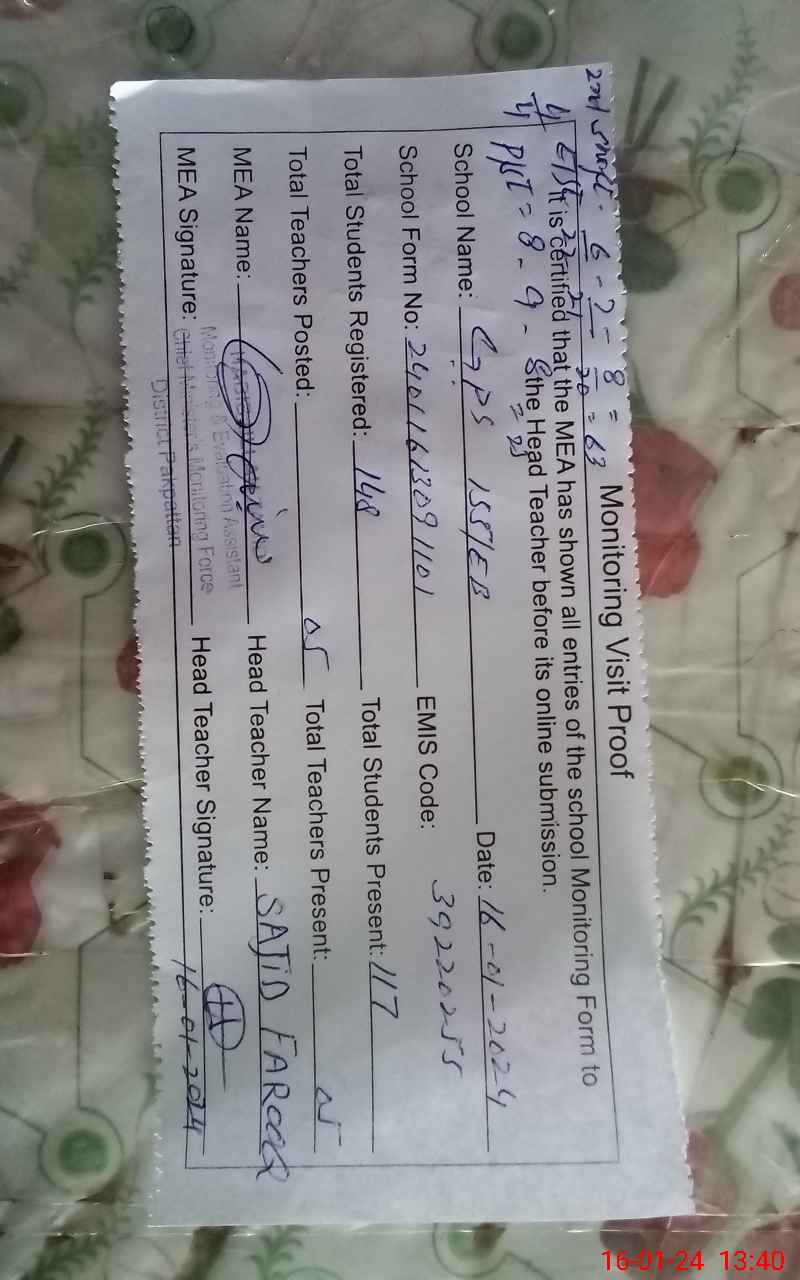 Monitoring Visit Proof
It is certified that the MEA has shown all entries of the school Monitoring Form to
the Head Teacher before its online submission.
2nd 6 - 7 - 8 = 63
PST = 8 - 9 - 8 = 25
School Name: GPS 155/EB Date: 16-01-2024
School Form No: 24011613091101 EMIS Code: 39220255
Total Students Registered: 148 Total Students Present: 117
Total Teachers Posted: 05 Total Teachers Present: 05
MEA Name: Head Teacher Name: SAJID FAROOQ
Monitoring & Evaluation Assistant
MEA Signature: Head Teacher Signature:
Chief Minister's Monitoring Force
District Pakpattan
16-01-2024
16-01-24 13:40